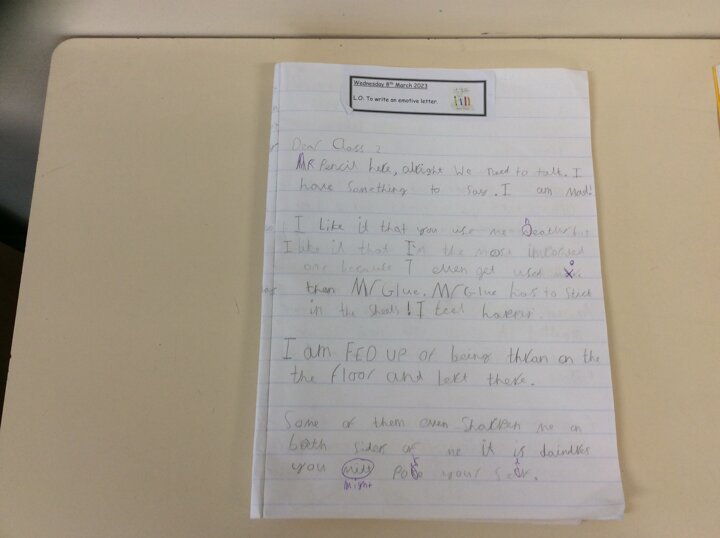 Wednesday 8th March 2023
L.O: To write an emotive letter.
Dear Class 2
MR Pencil here, alright We need to talk. I
have something to say. I am mad!
I Like it that you use me
I like it that I'm the most
one because I even get used
then Mr Glue. Mr Glue has to stick
in the sheets! I feel
I am FED UP of being thran on the
the floor and left there.
Some of them even sharpen me on
both sides of me it is
you mite your
might